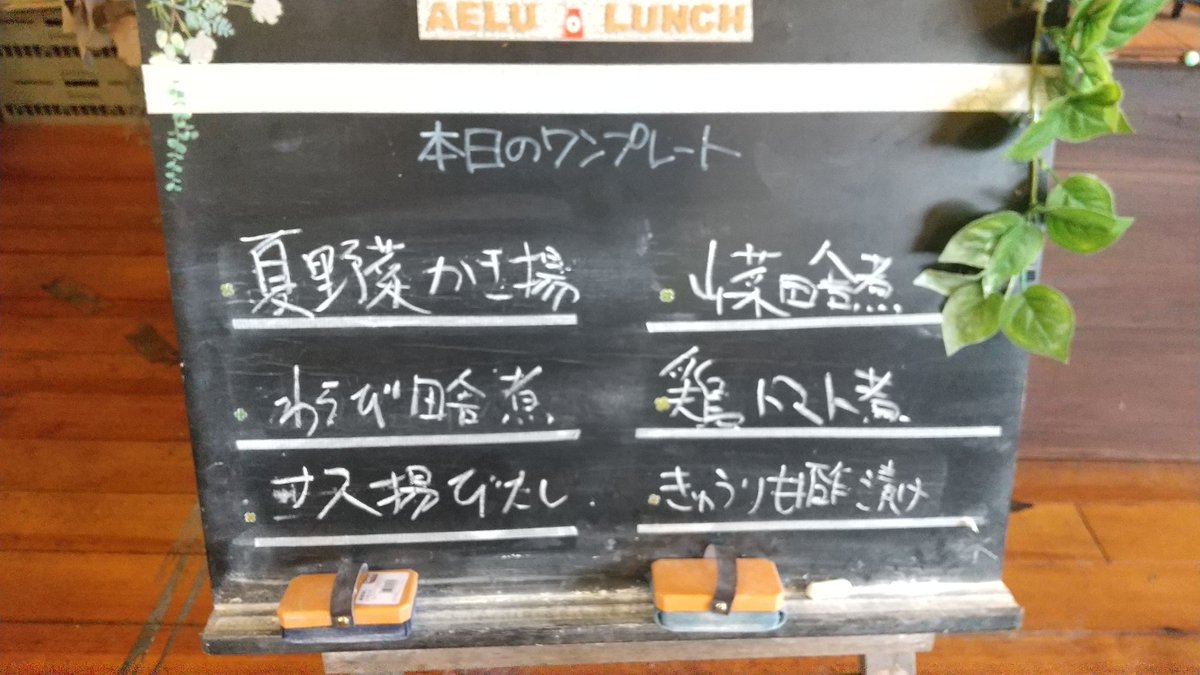 AELU LUNCH
本日のワンプレート
夏野菜かき揚
山菜田舎煮
わらび田舎煮
鶏トマト煮
ナス揚びたし
きゅうり甘酢漬け